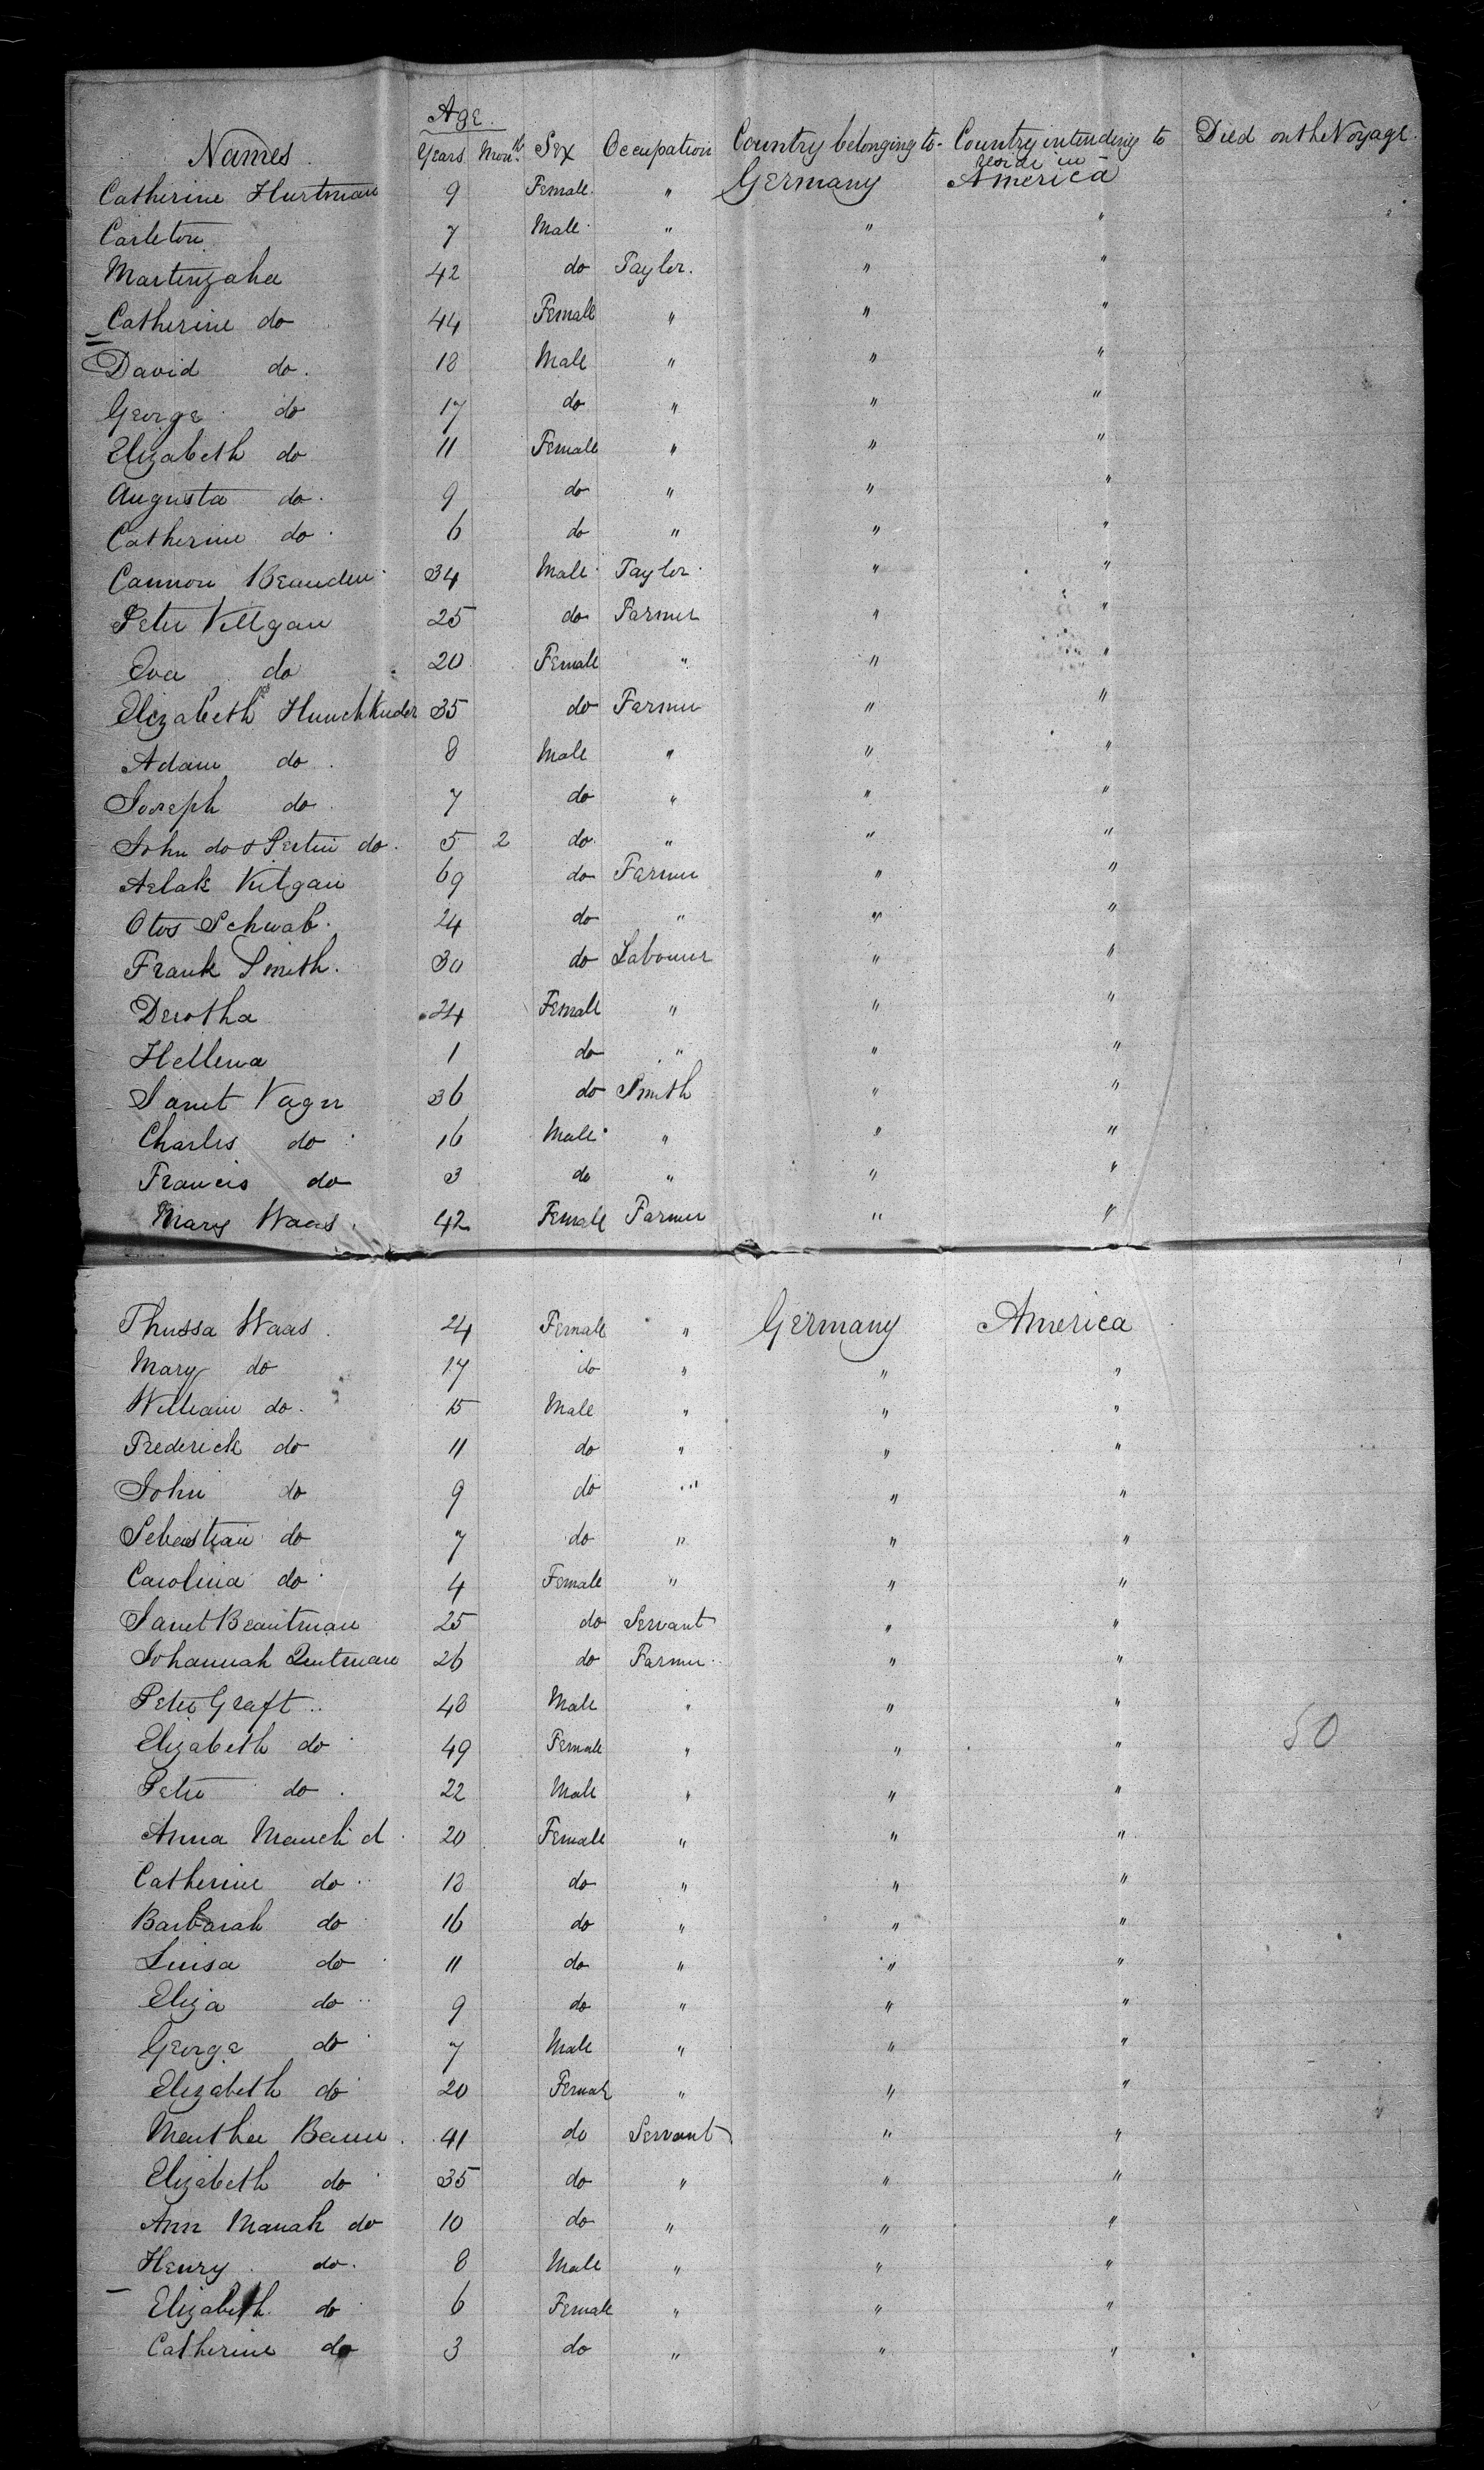 Age.
Names. Years Mon.th Sex Occupation Country belonging to- Country intending to reside in Died on the Voyage.
Catherine Hurtman 9 Female. " Germany America
Carleton 7 Male " " "
Martinzaha 42 do Taylor. " "
Catherine do 44 Female " " "
David do. 18 Male " " "
George do 17 do " " "
Elizabeth do 11 Female " " "
Augusta do. 9 do " " "
Catherine do. 6 do " " "
Cannon Beauden 34 Male Taylor " "
Peter Villgan 25 do Farmer " "
Eva do 20 Female " " "
Elizabeth 35 do Farmer " "
Adam do. 8 Male " " "
Joseph do. 7 do " " "
John do & do. 5 2 do. " " "
Vilgan 69 do Farmer " "
Otos Schwab. 24 do " " "
Frank Smith. 30 do Labourer " "
Derotha 24 Female " " "
Hellena 1 do " " "
Janet Vagn 36 do Smith " "
Charles do 16 Male " " "
Francis do 3 do " " "
Mary Waas. 42 Female Farmer " "
Thussa Waas. 24 Female " Germany America
Mary do 17 do " " "
William do. 15 Male " " "
Frederick do 11 do " " "
John do 9 do " " "
Sebastian do 7 do " " "
Carolina do 4 Female " " "
Janet Beautman 25 do Servant " "
Johannah 26 do Farmer " "
Peter Graft .. 48 Male " " "
Elizabeth do 49 Female " " " 50
Peter do. 22 Male " " "
Anna d 20 Female " " "
Catherine do 18 do " " "
Barbarah do 16 do " " "
Luisa do 11 do " " "
Eliza do 9 do " " "
George do 7 Male " " "
Elizabeth do 20 Female " " "
Baum. 41 do Servant " "
Elizabeth do 35 do " " "
Ann Manah do 10 do " " "
Henry do. 8 Male " " "
Elizabeth do 6 Female " " "
Catherine do 3 do " " "